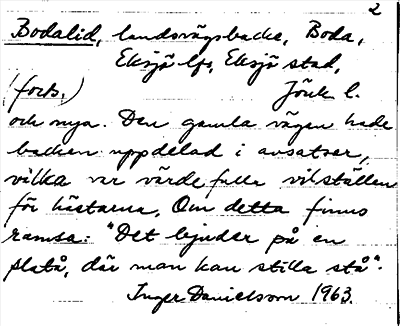 2
Bodalid, landsvägsbacke, Boda,
Eksjö lfs, Eksjö stad,
(forts.) Jönk l.
och nya. Den gamla vägen hade
backen uppdelad i avsatser,
vilka var värdefulla vilställen
för hästarna. Om detta finns
ramsa: "Det bjuder på en
platå, där man kan stilla stå".
Inger Danielsson 1963.